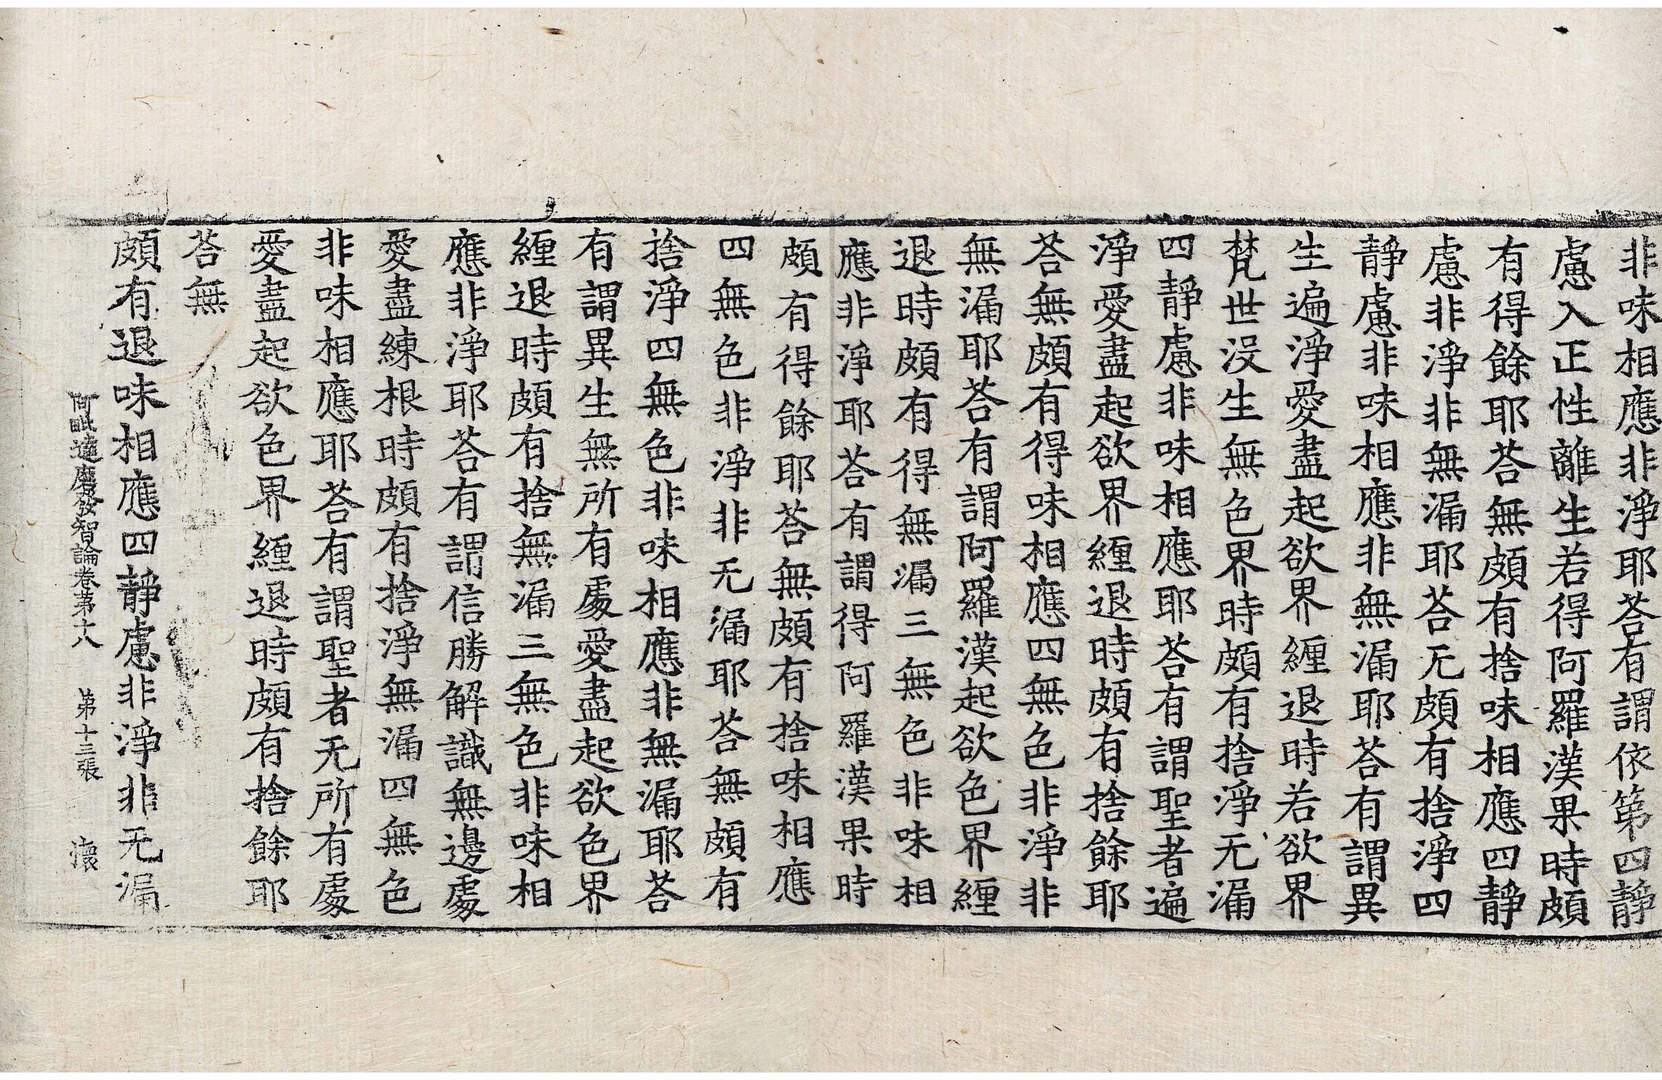 非味相應非淨耶荅有謂依第四靜
慮入正性離生若得阿羅漢果時頗
有得餘耶荅無頗有捨味相應四靜
慮非淨非無漏耶荅无頗有捨淨四
靜慮非味相應非無漏耶荅有謂異
生遍淨愛盡起欲界纏退時若欲界
梵世没生無色界時頗有捨淨无漏
四靜慮非味相應耶荅有謂聖者遍
淨愛盡起欲界纏退時頗有捨餘耶
荅無頗有得味相應四無色非淨非
無漏耶荅有謂阿羅漢起欲色界纏
退時頗有得無漏三無色非味相
應非淨耶荅有謂得阿羅漢果時
頗有得餘耶荅無頗有捨味相應
四無色非淨非无漏耶荅無頗有
捨淨四無色非味相應非無漏耶荅
有謂異生無所有處愛盡起欲色界
纏退時頗有捨無漏三無色非味相
應非淨耶荅有謂信勝解識無邊處
愛盡練根時頗有捨淨無漏四無色
非味相應耶荅有謂聖者无所有處
愛盡起欲色界纏退時頗有捨餘耶
荅無
頗有退味相應四靜慮非淨非无漏
阿毗達磨發智論卷第十八 第十三張 懷